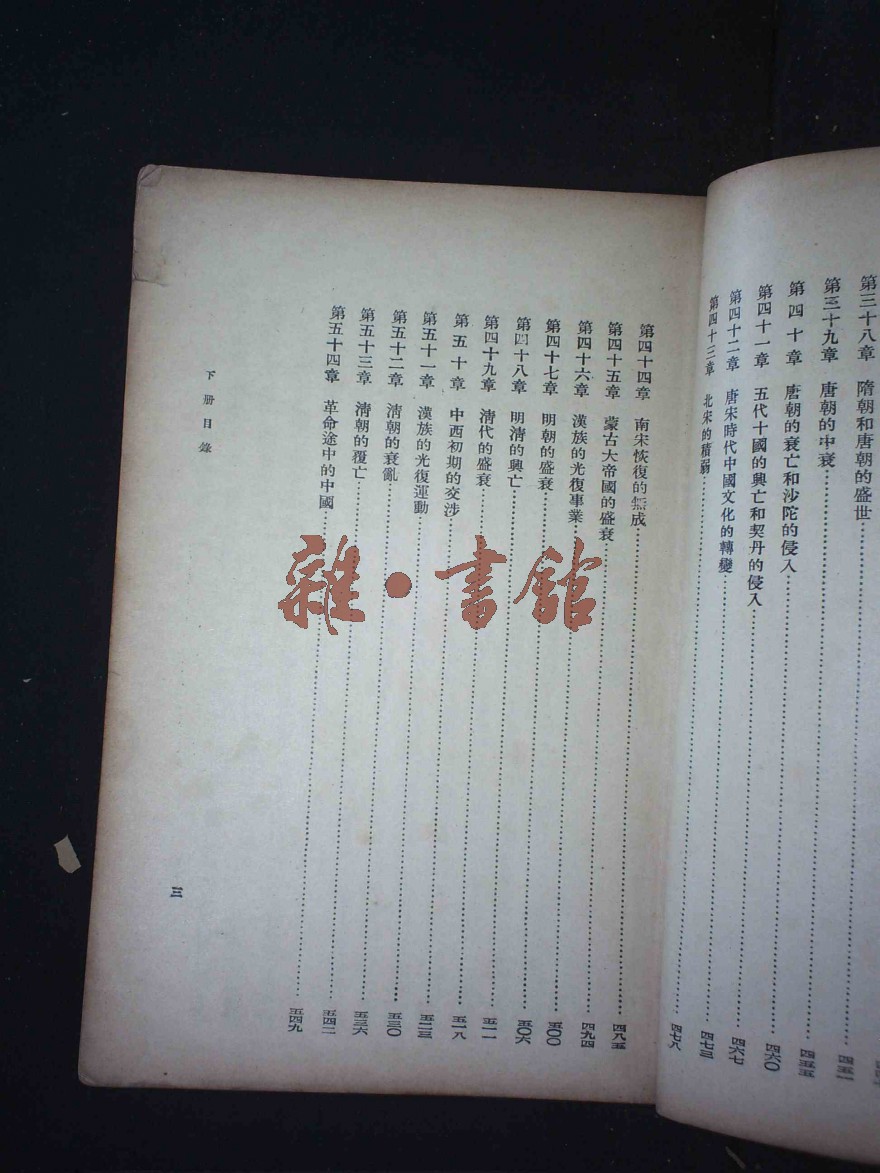 第三十八章 隋朝和唐朝的盛世……四五一
第三十九章 唐朝的中衰……四五五
第四十章 唐朝的衰亡和沙陀的侵入……四六〇
第四十一章 五代十國的興亡和契丹的侵入……四六七
第四十二章 唐宋時代中國文化的轉變……四七三
第四十三章 北宋的積弱……四七八
第四十四章 南宋恢復的無成……四八五
第四十五章 蒙古大帝國的盛衰……四九四
第四十六章 漢族的光復事業……五〇〇
第四十七章 明朝的盛衰……五〇六
第四十八章 明清的興亡……五一一
第四十九章 清代的盛衰……五一八
第五十章 中西初期的交涉……五二三
第五十一章 漢族的光復運動……五三〇
第五十二章 清朝的衰亂……五三六
第五十三章 清朝的覆亡……五四二
第五十四章 革命途中的中國……五四九
下冊目錄
三
雜·書館